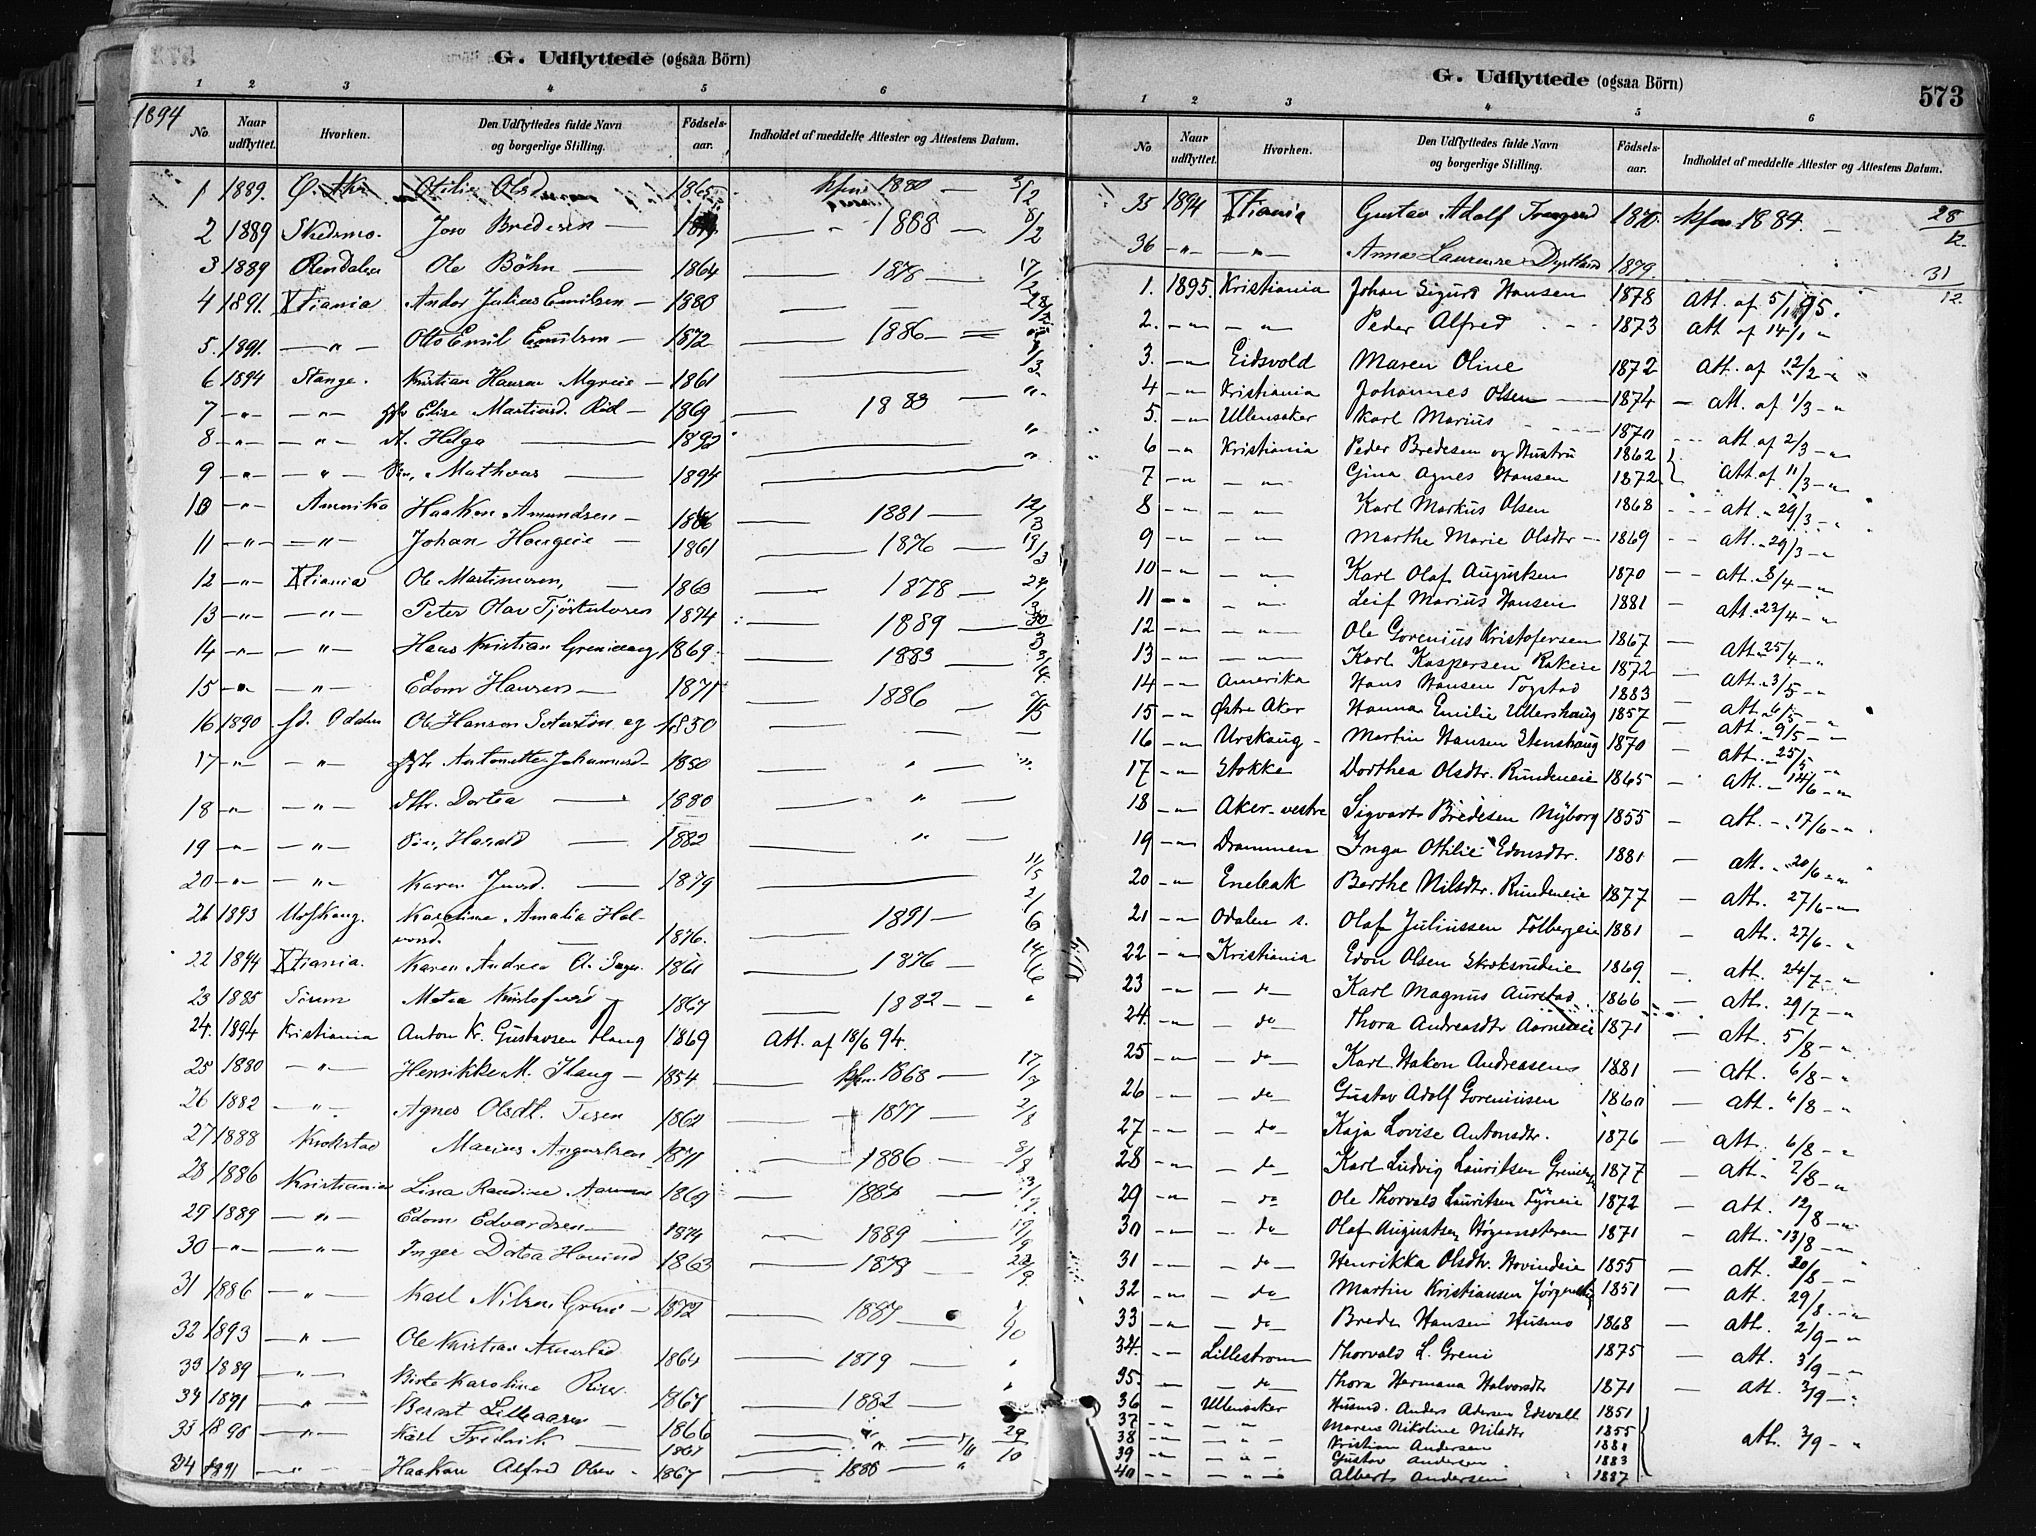 G. Udflyttede (ogsaa Börn)
1 2 3 4 5 6
1894
No Naar udflyttet. Hvorhen. Den Udflyttedes fulde Navn og borgerlige Stilling. Födsels-aar. Indholdet af meddelte Attester og Attestens Datum.
1 1889. Ø. Aker Otilie Olsd. 1865 kfm. 1880 — 3/2
2 1889 Skedsmo. Jon Bredesen — — " — 1868 — 8/2
3 1889 Rendalen Ole Böhn — 1864 — 1878 — 17/2
4 1891. Xtiania Andor Julius Emilsen — 1880
5. 1891. — " — Otto Emil Emilsen — 1872 — 1886 —
6 1894 Stange. Kristian Hansen Myreie — 1861 — 1/3
7 — " — — " — Elise Martinsd. — 1869 — 1883 — "
8 — " — — " — dt. Helga — 1892 — "
9 — " — — " — Søn, Mathias — 1894 — "
10 — " — Amerika Haakon Amundsen — 1881 — 12/3
11 — " — — " — Johan Haugeie — 1861 — 1876 — 19/3
12 — " — Xtiania Ole Martinusen, — 1863 — 1878 — 24/3
13 — " — — " — Peter Olav Tjöstulsen 1874 — 1889 — 30/3
14 — " — — " — Hans Kristian 1869 — 1883 — 3/4
15 — " — — " — Edom Hansen — 1871 — 1886 — 7/5
16 1890 sd. Odalen Ole Hansen og 1850 — —
17 — " — — " — Antonette Johannesd. 1850 — " — "
18 — " — — " — dtr. Dortea — 1880 — " —
19 — " — — " — Søn, Harald — 1882 — " —
20 — " — — " — Karen — 1879 — 11/5
26 1893 Urskoug. Karoline Amalia Hal-
vorsd. — 1876. — 1891 — 2/6
22 1894 Xtiania. Karen Andrea 1861 — 1876 — 14/6
23 1885 Sörum Matea Kristofersd 1867 — 1882 — "
24. 1894 Kristiania Anton K. Gustavsen Haug 1869 Att. af 18/6 94.
25 1880 — " — Henrikke M. Haug — 1854 — kfm. 1868 — 17/7
26 1882 — " — Agnes Olsdt. — 1877 — 2/8
27 1888 Krokstad Marius Augustsen 1871 — 1886 — 3/8
28 1886 Kristiania Lina Randine 1869 — 1884 —
29 1889 — " — Edom Edvardsen — 1874 — 1889 — 19/9
30 — " — — " — Inger Dortea Hovind 1863 — 1878 — 22/9
31 1886 — " — Karl Nilsen 1872 — 1887 — 1/10
32 1893 — " — Ole Kristian 1864 — 1879 — "
33 1889 — " — Karoline 1867 — 1882 — "
34 1891 — " — Bernt Lilleaasen — 1866 — " — 29/10
33 1890 — " — Karl Fredrik — 1867 — " — 8/11
34 1891 — " — Haakon Alfred Olsen 1867 — 1886 — "
G. Udflyttede (ogsaa Börn) 573
1 2 3 4 5 6
No Naar udflyttet. Hvorhen. Den Udflyttedes fulde Navn og borgerlige Stilling. Födsels-aar. Indholdet af meddelte Attester og Attestens Datum.
35 1894 Xtiania Gustav Adolf 1870. kfm 1884. — 28/12.
36 — " — — " — Anna Laurense 1879. 31/12
1. 1895. Kristiania Johan Sigurd Hansen 1878 Att. af 5/1 95.
2. — " — " — Peder Alfred 1873 Att. af 14/1 "
3. — " Eidsvold Maren Oline 1872 Att. af 12/2 — "
4 — " Kristiania Johannes Olsen — 1874 — Att. af 1/3 — "
5. — " Ullensaker Karl Marius 1870 — Att. af 2/3 — "
6 — " Kristiania Peder Bredesen og Hustru 1862
7 — " — " — Gina Agnes Hansen 1872 Att. af 11/3 — "
8 — " — " — Karl Markus Olsen 1868 — Att. " 29/3 — "
9 — " — " — Marthe Marie Olsdtr — 1869 — Att. " 29/3 — "
10 — " — " — Karl Olaf Augustsen 1870 — Att. " 8/4 — "
11 — " — " — Leif Marius Hansen 1881 — Att. " 23/4 — "
12 — " — " — Ole Gorenius Kristofersen 1867 — Att. " 25/4 — "
13 — " — " — Karl Kaspersen Rakeie 1872 — Att. " 3/5 — "
14 — " Amerika Hans Hansen Togstad 1883 — Att. " 6/5 — "
15 — " Østre Aker Hanna Emilie Ullershaug 1857 — Att. " 9/5 — "
16 — " Urskaug — Martin Hansen Stenshaug 1870 — Att. 25/5 — "
17 — " Stokke Dorthea Olsdtr. Rundereie 1865 — Att. — 14/6 — "
18 — " Aker-vestre Sigvart Bredesen Nyborg 1855 — Att. — 17/6 — "
19 — " Drammen Inga Othilie Edonsdtr. 1881 — Att. " 20/6 — "
20 — " Enebak Berthe Nilsdtr. Rundereie 1877 — Att. 27/6 — "
21 — " Odalen s. Olaf Juliussen Tolbergeie 1881 — Att. 27/6 — "
22 — " Kristiania Edon Olsen Skoksrudeie 1869 — Att. 24/7 — "
23 — " — do Karl Magnus Aurstad 1866 — Att. 29/7 — "
24 — " — do Thora Andreasdtr 1871 — Att. 5/8 — "
25 — " — do Karl Hakon Andreasen 1881 — Att. 6/8 — "
26 — " — do Gustav Adolf Goreniusen 1860 — Att. 6/8 — "
27 — " — do Kaja Lovise Antonsdtr. 1876 — Att. 6/8 — "
28 — " — do Karl Ludvig Lauritsen 1877 — Att. 2/8 — "
29 — " — do Ole Thorvald Lauritsen Fyreie 1872 — Att. 12/8 — "
30 — " — do Olaf Augustsen 1871 — Att. 13/8 — "
31 — " — do Henrikka Olsdtr. Hovindeie 1855 — Att. 20/8 — "
32 — " — do Martin Kristiansen 1851 — Att. 29/8 — "
33 — " — do Brede Hansen Husmo 1868 — Att. 2/9 — "
34. — " Lillestrøm Thorvald L. Greni 1875 — Att. 3/9 — "
35. — " — do Thora Hermana Halvorsdtr 1871 — Att. 3/9 — "
36 — " Ullensaker Husmd. Anders Edsvall 1851
37 — " — " — Maren Nikoline Nilsdtr 1855
38 — " — " — Kristian Andersen 1881 Att. 3/9 — "
39 — " — " — Gustav Andersen 1883
40 — " — " — Albert Andersen 1887